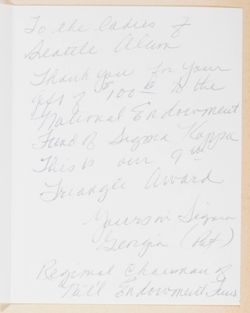 To the ladies of
Seattle Alum
Thank you for your
gift of $100 00 to the
National Endowment
Fund of Sigma Kappa
This is our 9th
Triangle Award
Yours in Sigma
Georgia
Regional Chairman of
Nat'l Endowment Fund